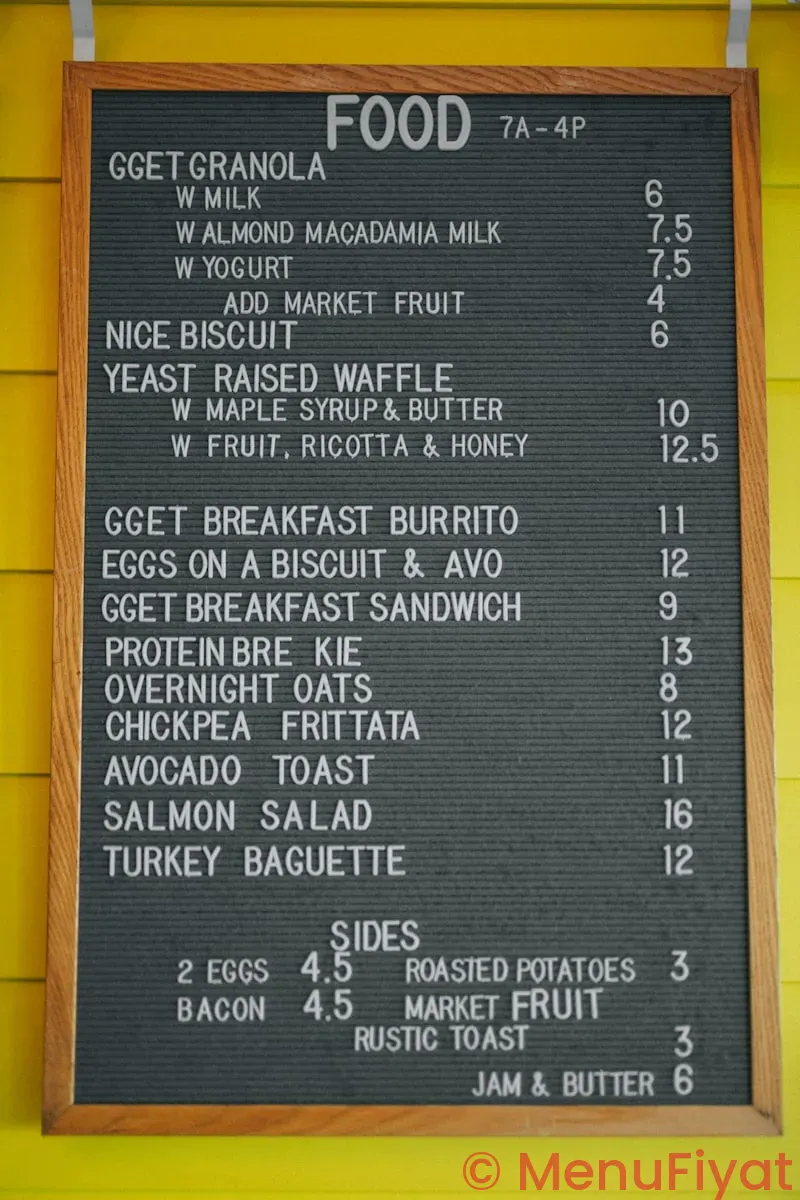 FOOD 7A-4P
GGET GRANOLA
W MILK 6
W ALMOND MACADAMIA MILK 7.5
W YOGURT 7.5
ADD MARKET FRUIT 4
NICE BISCUIT 6
YEAST RAISED WAFFLE
W MAPLE SYRUP & BUTTER 10
W FRUIT, RICOTTA & HONEY 12.5
GGET BREAKFAST BURRITO 11
EGGS ON A BISCUIT & AVO 12
GGET BREAKFAST SANDWICH 9
PROTEIN BRE KIE 13
OVERNIGHT OATS 8
CHICKPEA FRITTATA 12
AVOCADO TOAST 11
SALMON SALAD 16
TURKEY BAGUETTE 12
SIDES
2 EGGS 4.5 ROASTED POTATOES 3
BACON 4.5 MARKET FRUIT
RUSTIC TOAST 3
JAM & BUTTER 6
© MenuFiyat